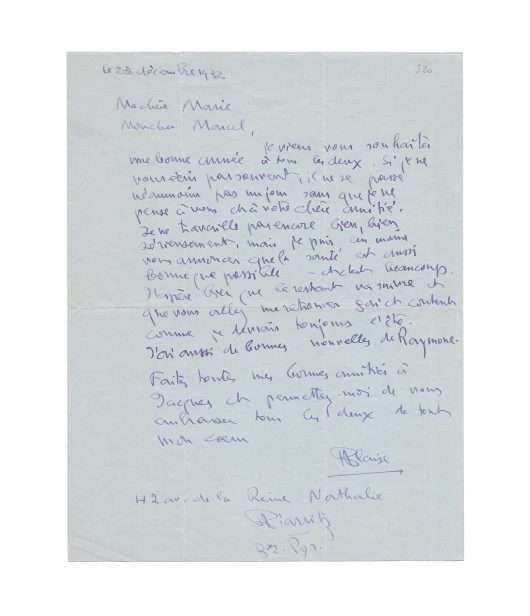 le 28 décembre 1932
320
Ma chère Marie
Mon cher Marcel,
je viens vous souhaiter
une bonne année à tous les deux. Si je ne
vous écris pas souvent, il ne se passe
néanmoins pas un jour sans que je ne
pense à vous et à votre chère amitié.
Je ne travaille pas encore bien, bien
sérieusement, mais je puis au moins
vous annoncer que la santé est aussi
bonne que possible - et c'est beaucoup.
J'espère bien que le restant va suivre et
que vous allez me retrouver gai et content
comme je devrais toujours l'être.
J'ai aussi de bonnes nouvelles de Raymone.
Faites toutes mes bonnes amitiés à
Jacques et permettez-moi de vous
embrasser tous les deux de tout
mon coeur
Blaise
42 av. de la Reine Nathalie
Biarritz
Bses Pyr.